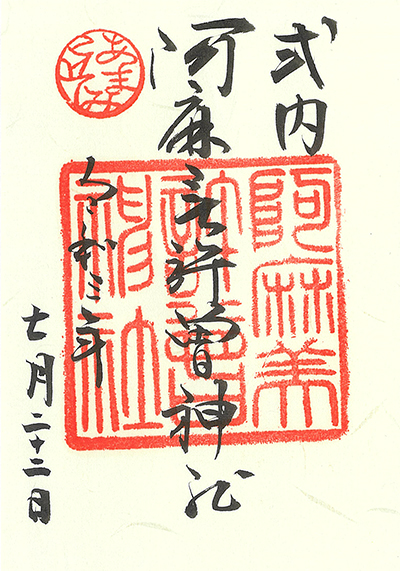 式内
阿麻美許曽神社
令和三年
七月二十二日
阿麻美
許曽
神社